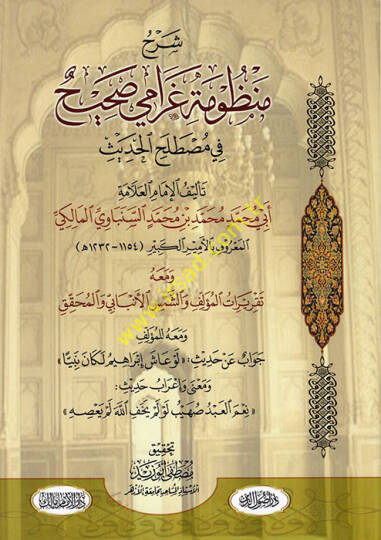 شرح
منظومة غرامي صحيح
في مصطلح الحديث
تأليف الإمام العلامة
أبي محمد محمد بن محمد السنباوي المالكي
المعروف بالأمير الكبير (١١٥٤-١٢٣٢هـ)
ومعه
تقريرات المؤلف والشمس الأنبابي والمحقق
ومعه للمؤلف
جواب عن حديث: «لو عاش إبراهيم لكان نبيا»
ومعنى وإعراب حديث:
«نعم العبد صهيب لو لم يخف الله لم يعصه»
تحقيق
مصطفى أبو زيد
دار الإمام مالك